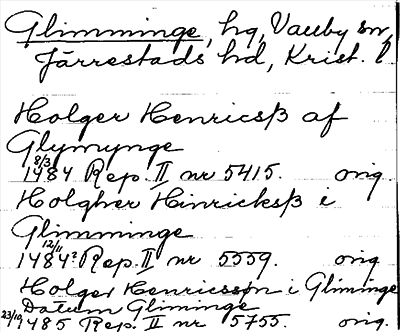 Glimminge, hg, Vallby sn,
Järrestads hd, Krist. l
Holger Henricsß af
Glymynge
8/3 1484 Rep. II nr 5415. orig.
Holgher Hinricksß i
Glimminge
12/11 1484? Rep. II nr 5559. orig
Holger Henricsson i Gliminge
Datum Gliminge
23/10 1485 Rep. II nr 5755. orig.